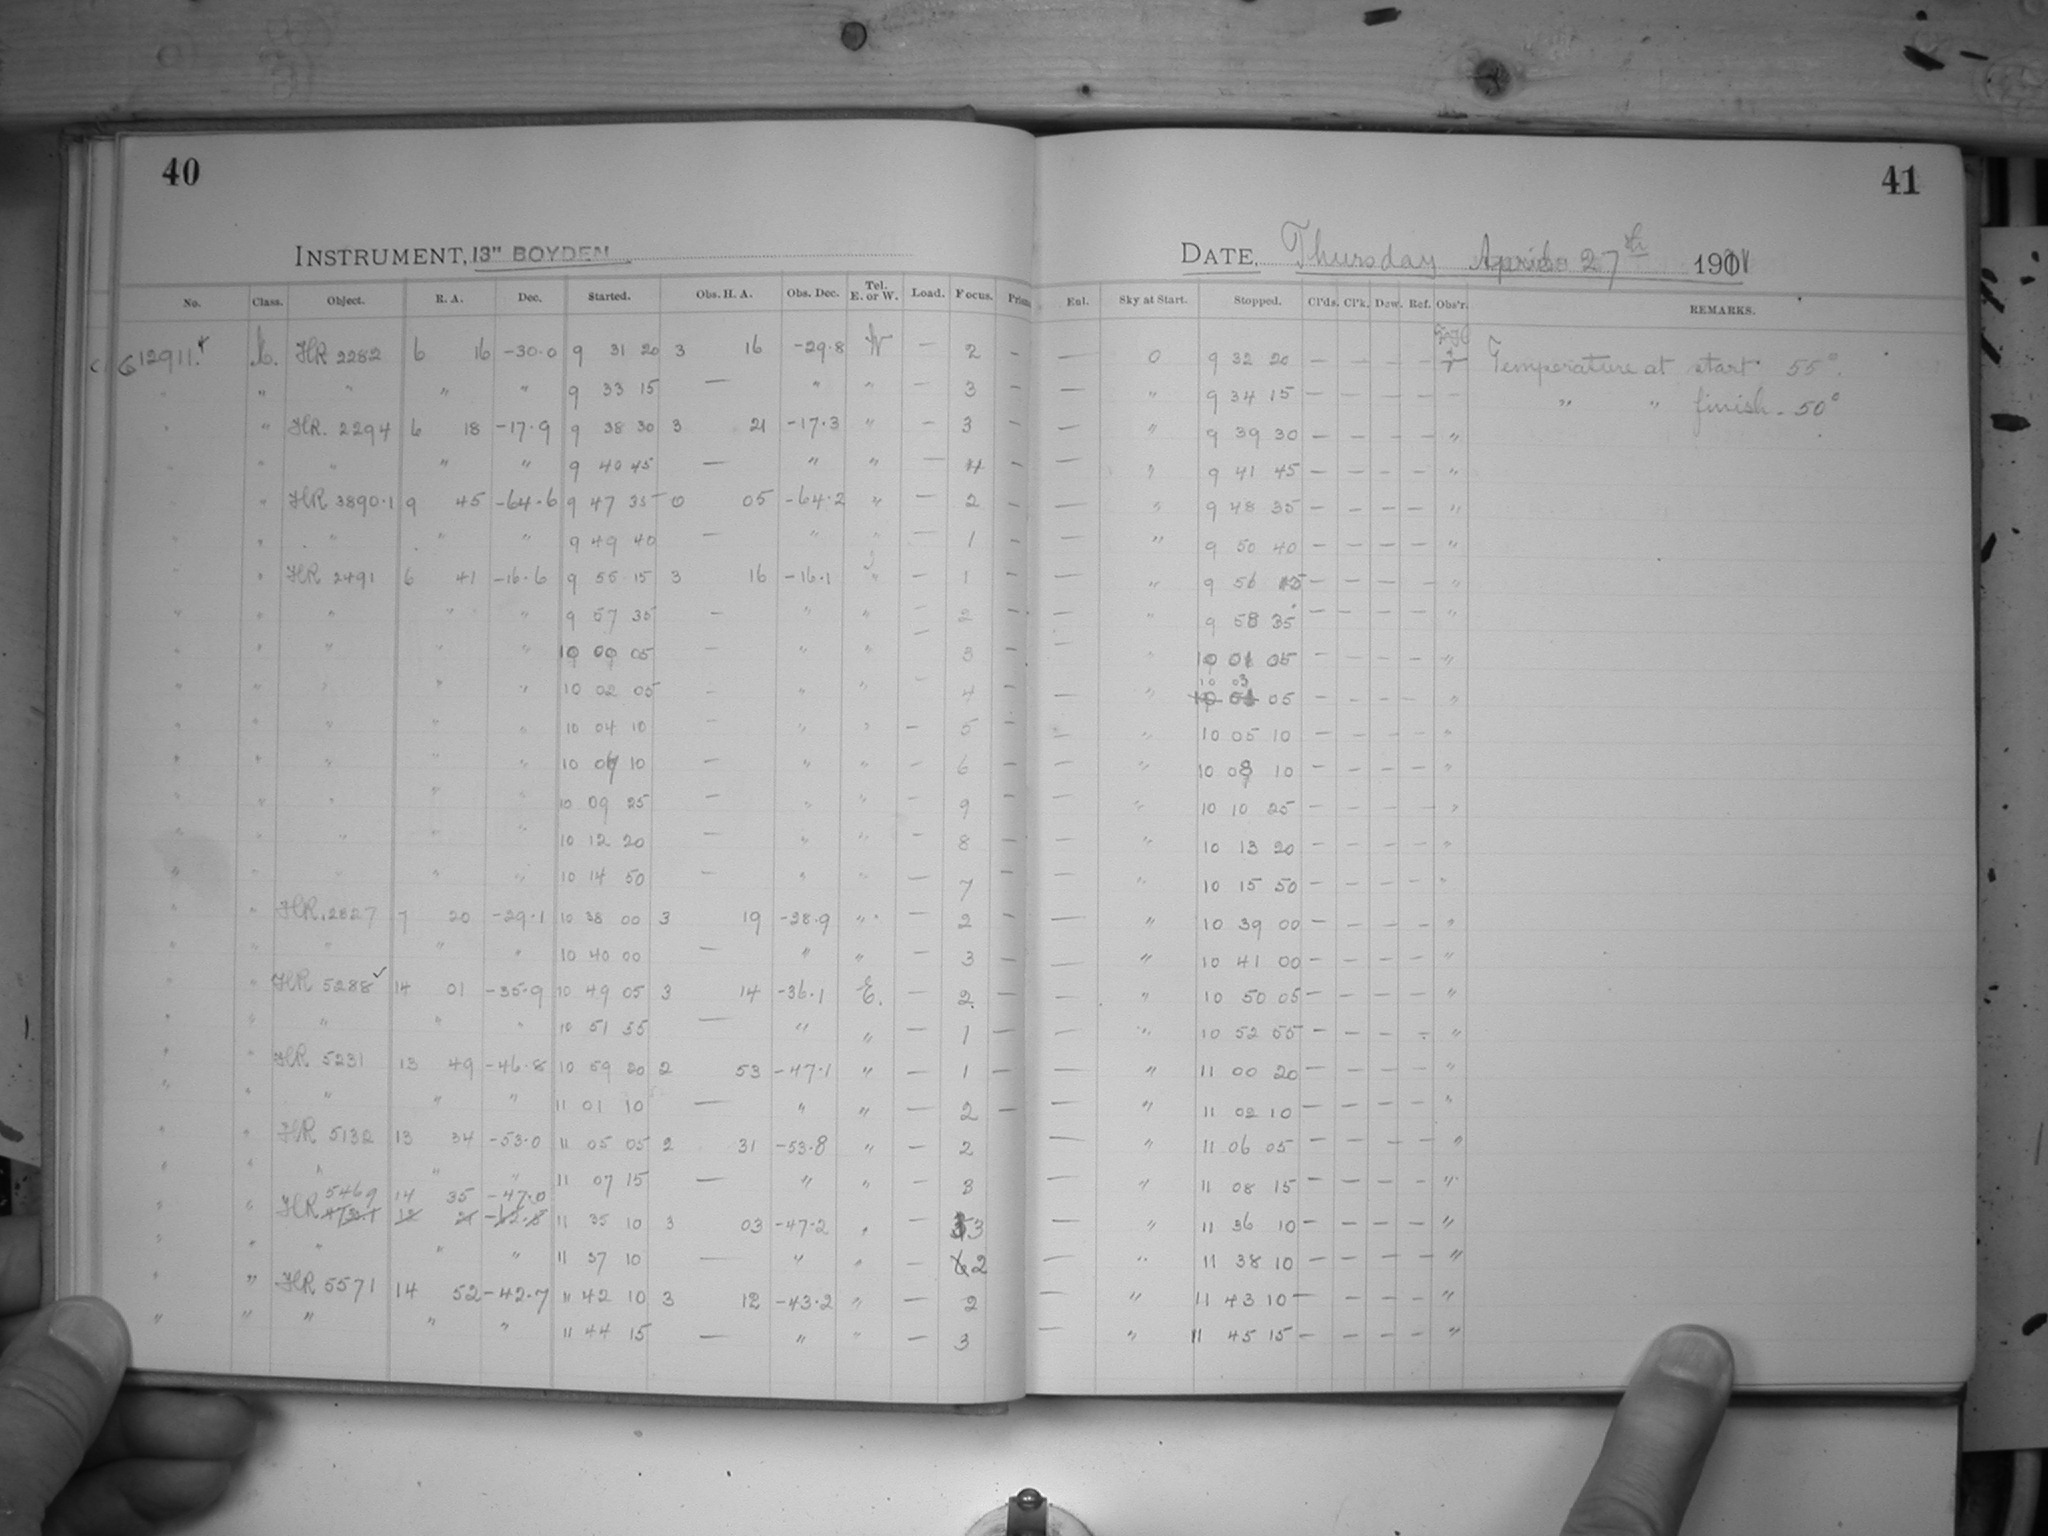 40
INSTRUMENT, 13" BOYDEN
No. Class. Object. R. A. Dec. Started. Obs. H. A. Obs. Dec. Tel. E. or W. Load. Focus.
12911 HR 2282 6 16 -30.0 9 31 20 3 16 -29.8 W — 2 –
" " " " 9 33 15 — " " – 3 –
" HR. 2294 6 18 -17.9 9 38 30 3 21 -17.3 " – 3 –
" " " " 9 40 45 — " " — 4 –
" HR 3890.1 9 45 -64.6 9 47 35 0 05 -64.2 " – 2 –
" " " " 9 49 40 — " " — 1 –
" HR 2491 6 41 -16.6 9 55 15 3 16 -16.1 " – 1 –
" " " " " 9 57 35 – " " – 2 –
" " " " " " 10 00 05 – " " – 3 –
" " " " " " 10 02 05 – " " – 4 –
" " " " " " 10 04 10 – " " – 5 –
" " " " " " 10 07 10 – " " – 6 –
" " " " " " 10 09 25 – " " – 9 –
" " " " " 10 12 20 — " " – 8 –
" " " " " 10 14 50 – " " — 7 –
" " HR. 2827 7 20 -29.1 10 38 00 3 19 -28.9 " – 2 –
" " " " " 10 40 00 — " " — 3 –
" " HR 5288 ✓ 14 01 -35.9 10 49 05 3 14 -36.1 E. – 2 –
" " " " " 10 51 55 — " " – 1 –
" " HR 5231 13 49 -46.8 10 59 20 2 53 -47.1 " – 1 –
" " " " " 11 01 10 — " " — 2 –
" " HR 5132 13 34 -53.0 11 05 05 2 31 -53.8 " – 2
" " " " " 11 07 15 — " " – 3
5469 14 35 -47.0
" " HR 11 35 10 3 03 -47.2 " – 3
" " " " " 11 37 10 — " " – 2
" " HR 5571 14 52 -42.7 11 42 10 3 12 -43.2 " — 2
" " " " " 11 44 15 — " " – 3
41
DATE, Thursday April 27th 1911
Eul. Sky at Start. Stopped. Cl'ds. Cl'k. Dew. Ref. Obs'r. REMARKS.
— 0 9 32 20 – – – – Temperature at start 55°.
— " 9 34 15 – – – – – " " finish. 50°
— " 9 39 30 – – – – "
— " 9 41 45 – – – – "
— " 9 48 35 – – – – "
— " 9 50 40 – – – – "
— " 9 56 15 – – – – "
— " 9 58 35 – – – – "
— " 10 01 05 – – – – "
10 03
— " 05 – – – – "
— " 10 05 10 – – – – "
— " 10 08 10 – – – – "
— " 10 10 25 – – – – "
— " 10 13 20 – – – – "
— " 10 15 50 – – – – "
— " 10 39 00 – – – – "
— " 10 41 00 – – – – "
— " 10 50 05 – – – – "
— " 10 52 55 – – – – "
— " 11 00 20 – – – – "
— " 11 02 10 – – – – "
— " 11 06 05 – – – – "
— " 11 08 15 – – – – "
— " 11 36 10 – – – – "
— " 11 38 10 – – – – "
— " 11 43 10 – – – – "
— " 11 45 15 – – – – "